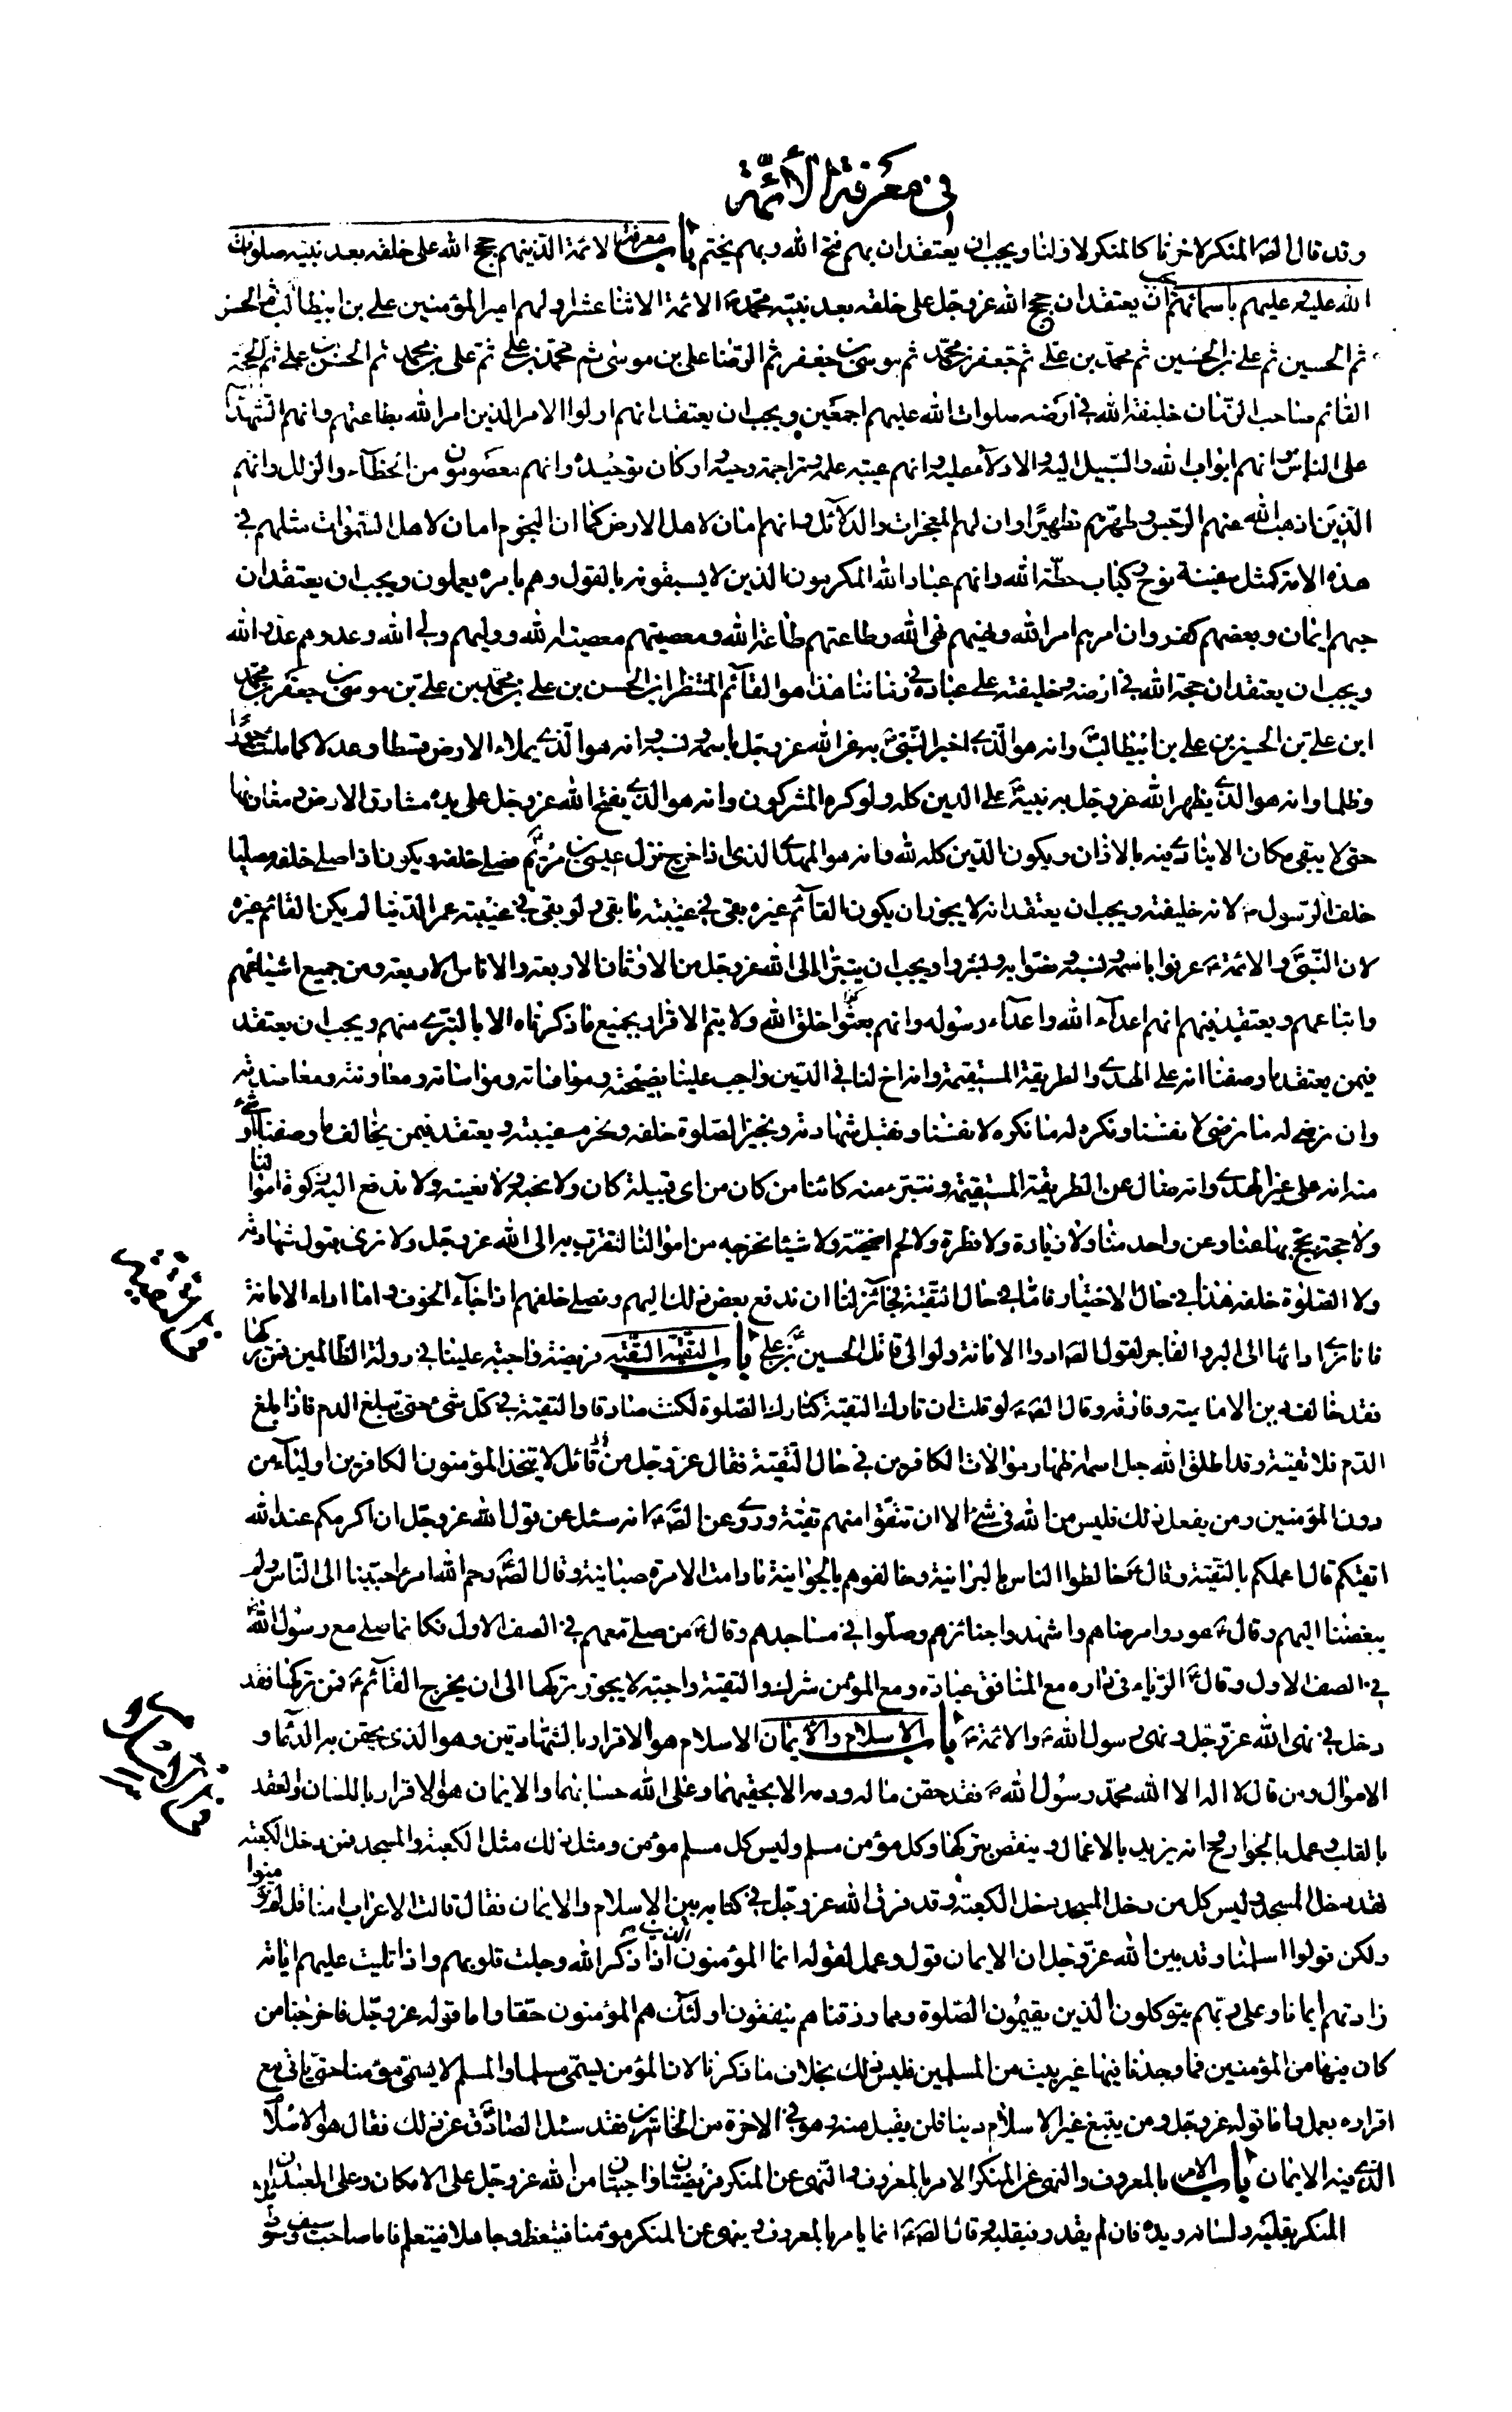 في معرفة الأئمة
وقد قال الصاد المنكر لاخرنا كالمنكر لاولنا ويجب ان يعتقد ان بهم فتح الله وبهم يختم باب معرفة الائمة الذينهم حجج الله على خلقه بعد نبيه صلوات
الله عليه وعليهم باسمائهم يجب ان يعتقد ان حجج الله عز وجل على خلقه بعد نبيه محمد ص الائمة الاثنا عشر اولهم امير المؤمنين علي بن ابيطالب ثم الحسن
ثم الحسين ثم علي بن الحسين ثم محمد بن علي ثم جعفر بن محمد ثم موسى بن جعفر ثم الرضا علي بن موسى ثم محمد بن علي ثم علي بن محمد ثم الحسن بن علي ثم الحجة
القائم صاحب الزمان خليفة الله في ارضه صلوات الله عليهم اجمعين ويجب ان يعتقد انهم اولوا الامر الذين امر الله بطاعتهم وانهم الشهداء
على الناس وانهم ابواب الله والسبيل اليه والادلاء عليه وانهم عيبة علمه وتراجمة وحيه واركان توحيده وانهم معصومون من الخطآء والزلل وانهم
الذين اذهب الله عنهم الرجس وطهرهم تطهيرًا وان لهم المعجزات والدلآئل وانهم امان لاهل الارض كما ان النجوم امان لاهل السموات مثلهم في
هذه الامة كمثل سفينة نوح وكباب حطة الله وانهم عباد الله المكرمون الذين لا يسبقونه بالقول وهم بامره يعملون ويجب ان يعتقد ان
حبهم ايمان وبغضهم كفر وان امرهم امر الله ونهيهم نهى الله وطاعتهم طاعة الله ومعصيتهم معصية الله ووليهم ولي الله وعدوهم عدو الله
ويجب ان يعتقد ان حجة الله في ارضه وخليفته على عباده في زماننا هذا هو القآئم المنتظر ابن الحسن بن علي بن محمد بن علي بن موسى بن جعفر بن محمد
ابن علي بن الحسين بن علي بن ابيطالب وانه هو الذي اخبر النبي ص به عن الله عز وجل باسمه ونسبه وانه هو الذي يملاء الارض قسطا وعدلا كما ملئت جورًا
وظلما وانه هو الذي يظهر الله عز وجل به نبيه ص على الدين كله ولو كره المشركون وانه هو الذي يفتح الله عز وجل على يده مشارق الارض ومغاربها
حتى لا يبقى مكان الا ينادي فيه بالاذان ويكون الدين كله لله وانه هو المهدي الذى اذا خرج نزل عيسى بن مريم فصلى خلفه ويكون اذا صلى خلفه مصليا
خلف الرسول ص لانه خليفته ويجب ان يعتقد انه لا يجوز ان يكون القآئم غيره بقى في غيبته ما بقى ولو بقى في غيبته عمر الدنيا لم يكن القائم غيره
لان النبي ص والائمة ع عرفوا باسمه ونسبه ونصوا به وبشروا ويجب ان يتبرا الى الله عز وجل من الاوثان الاربعة والاناث الاربعة ومن جميع اشياعهم
واتباعهم ويعتقد فيهم انهم اعدآء الله واعدآء رسوله وانهم شر خلق الله ولا يتم الاقرار بجميع ما ذكرناه الا بالتبري منهم ويجب ان يعتقد
فيمن يعتقد ما وصفنا انه على الهدى والطريقة المستقيمة وانه اخ لنا في الدين واجب علينا نصيحته وموافاته ومواساته ومعاونته ومعاضدته
وان نرضى له ما نرضى لانفسنا ونكره له ما نكره لانفسنا ونقبل شهادته ونجيز الصلوة خلفه ونحرم غيبته ويعتقد فيمن يخالف ما وصفنا او شئ
منه انه على غير الهدى وانه ضال عن الطريقة المستقيمة ونتبرء منه كائنا من كان من اى قبيلة كان ولا نحبه ولا نعينه ولا ندفع اليه زكوة اموالنا
ولا حجة يحج بها عنا وعن واحد منا ولا زيارة ولا فطرة ولا لحم اضحية ولا شيئا نخرجه من اموالنا لنتقرب به الى الله عز وجل ولا نرى قبول شهادته
ولا الصلوة خلفه هذا في حال الاختيار فاما في حال التقية فجآئز لنا ان ندفع بعض ذلك اليهم ونصلي خلفهم اذا جآء الخوف واما اداء الامانة
فانا نرى ادائها الى البر والفاجر لقول الصاد ادوا الامانة ولو الى قاتل الحسين بن علي ع باب التقية التقية فريضة واجبة علينا في دولة الظالمين فمن تركها
فقد خالف دين الامامية وفارقه وقال الصاد لو قلت ان تارك التقية كتارك الصلوة لكنت صادقا والتقية في كل شئ حتى تبلغ الدم فاذا بلغ
الدم فلا تقية وقد اطلق الله جل اسمه اظهار موالات الكافرين في حال التقية فقال عز وجل من قائل لا يتخذ المؤمنون الكافرين اوليآء من
دون المؤمنين ومن يفعل ذلك فليس من الله في شئ الا ان تتقوا منهم تقية وروى عن الصاد انه سئل عن قول الله عز وجل ان اكرمكم عند الله
اتقيكم قال اعملكم بالتقية وقال ع خالطوا الناس بالبرانية وخالفوهم بالجوانية ما دامت الامرة صبيانية وقال الصاد رحم الله امرء احببنا الى الناس ولم
يبغضنا اليهم وقال ع عودوا مرضاهم واشهدوا جنائزهم وصلوا في مساجدهم وقال ع من صلى معهم في الصف الاول فكانما صلى مع رسول الله ص
في الصف الاول وقال ع الرياء في داره مع المنافق عبادة ومع المؤمن شرك والتقية واجبة لا يجوز تركها الى ان يخرج القآئم ع فمن تركها فقد
دخل في نهى الله عز وجل ونهى رسول الله ص والائمة ع باب الاسلام والايمان الاسلام هو الاقرار بالشهادتين وهو الذى يحقن به الدماء و
الاموال ومن قال لا اله الا الله محمد رسول الله ص فقد حقن ماله ودمه الا بحقيهما وعلى الله حسابهما والايمان هو الاقرار باللسان والعقد
بالقلب وعمل بالجوارح انه يزيد بالاعمال وينقص بتركها وكل مؤمن مسلم وليس كل مسلم مؤمن ومثل ذلك مثل الكعبة والمسجد فمن دخل الكعبة
فقد دخل المسجد وليس كل من دخل المسجد دخل الكعبة وقد فرق الله عز وجل في كتابه بين الاسلام والايمان فقال قالت الاعراب امنا قل لم تؤمنوا
ولكن قولوا اسلمنا وقد بين الله عز وجل ان الايمان قول وعمل لقوله انما المؤمنون الذين اذا ذكر الله وجلت قلوبهم واذا تليت عليهم اياته
زادتهم ايمانا وعلى ربهم يتوكلون الذين يقيمون الصلوة ومما رزقناهم ينفقون اولئك هم المؤمنون حقا واما قوله عز وجل فاخرجنا من
كان فيها من المؤمنين فما وجدنا فيها غير بيت من المسلمين فليس ذلك بخلاف ما ذكرنا لان المؤمن يسمى مسلما والمسلم لا يسمى مؤمنا حتى ياتى مع
اقراره بعمل واما قوله عز وجل ومن يبتغ غير الاسلام دينا فلن يقبل منه وهو في الاخرة من الخاسرين فقد سئل الصادق ع عن ذلك فقال هو الاسلام
الذي فيه الايمان باب الامر بالمعروف والنهى عن المنكر الامر بالمعروف والنهى عن المنكر فريضتان واجبتان من الله عز وجل على الامكان وعلى العبد ان
المنكر بقلبه ولسانه ويده فان لم يقدر فبقلبه وقال الصاد انما يامر بالمعروف وينهى عن المنكر مؤمنا فيتعظ وجاهلا فيتعلم فاما صاحب سيف وسوط